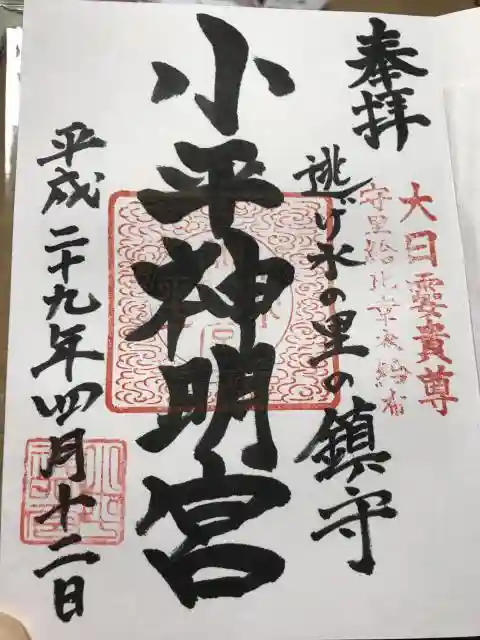 奉拝
大日孁貴尊
逃げ水の里の鎮守
小平神明宮
平成二十九年四月十二日